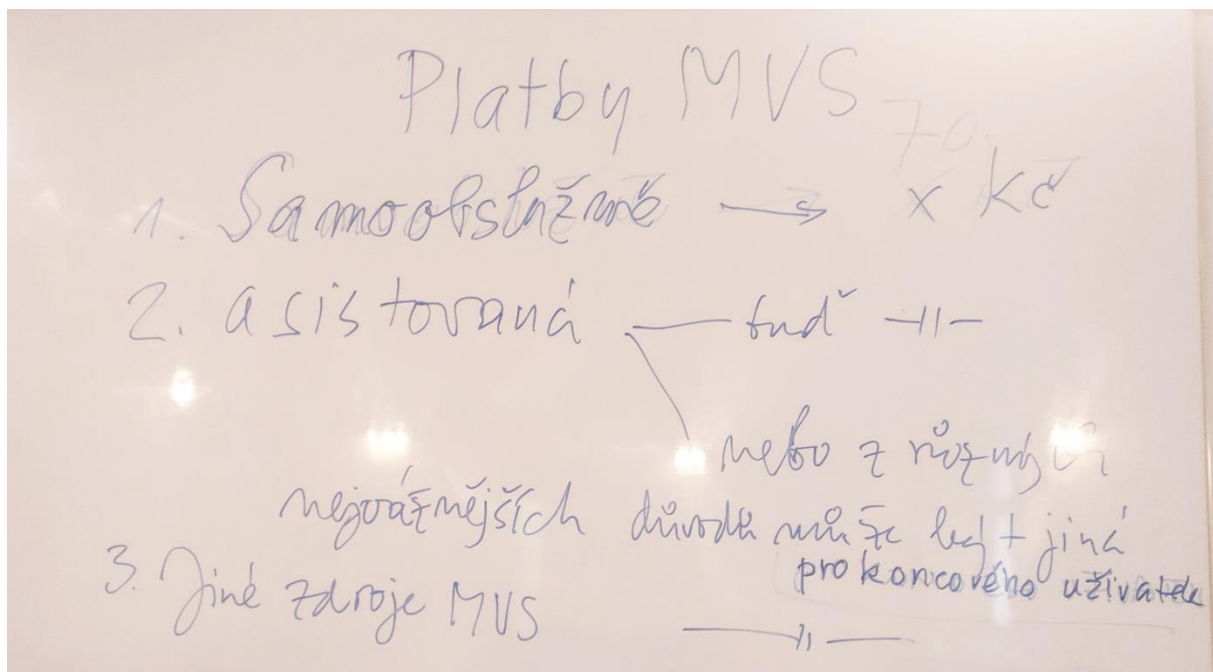 Platby MVS
70
1. Samoobslužné → x Kč
2. asistovaná — buď —||—
nebo z různých
nejvážnějších důvodů může být jiná
pro koncového uživatele
3. Jiné zdroje MVS —||—